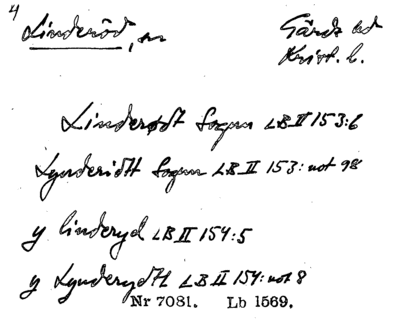 4
Linderöd, sn
Gärds hd
Krist. l.
Linderødt Sogen LB II 153:6
Lynderidtt Sogen LB II 153: not 98
y linderyd LB II 154:5
y Lynderydtt LB II 154: not 8
Nr 7081. Lb 1569.